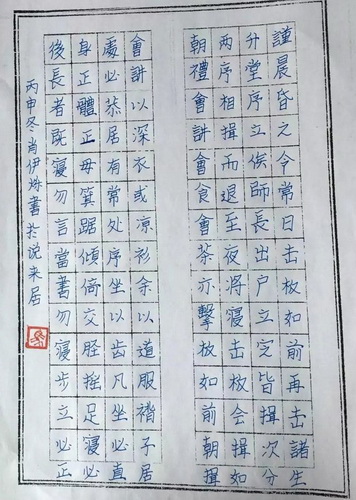 謹晨昏之令常日击板如前再击諸生
升堂序立俟師長出户立定皆揖次分
两序相揖而退至夜將寝击板会揖如
朝禮會講會食會茶亦擊板如前朝揖
會講以深衣或凉衫余以道服褙子居
處必恭居有常处序坐以齿凡坐必直
身正體正毋箕踞傾倚交脛摇足寝必
後長者既寝勿言當書勿寝步立必正
丙申冬肖伊書於说来居